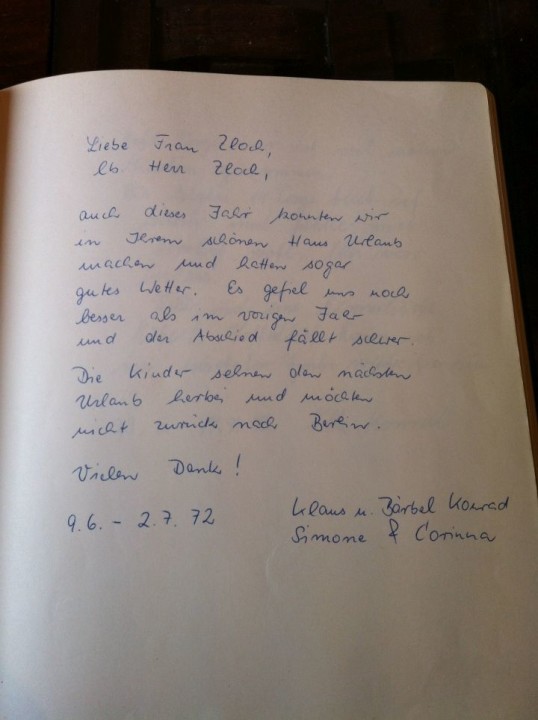 Liebe Frau Zloch,
lb. Herr Zloch,
auch dieses Jahr konnten wir
in Ihrem schönen Haus Urlaub
machen und hatten sogar
gutes Wetter. Es gefiel uns noch
besser als im vorigen Jahr
und der Abschied fällt schwer.
Die Kinder sehnen den nächsten
Urlaub herbei und möchten
nicht zurück nach Berlin.
Vielen Dank!
9.6. - 2.7. 72
Klaus u. Bärbel Konrad
Simone & Corinna